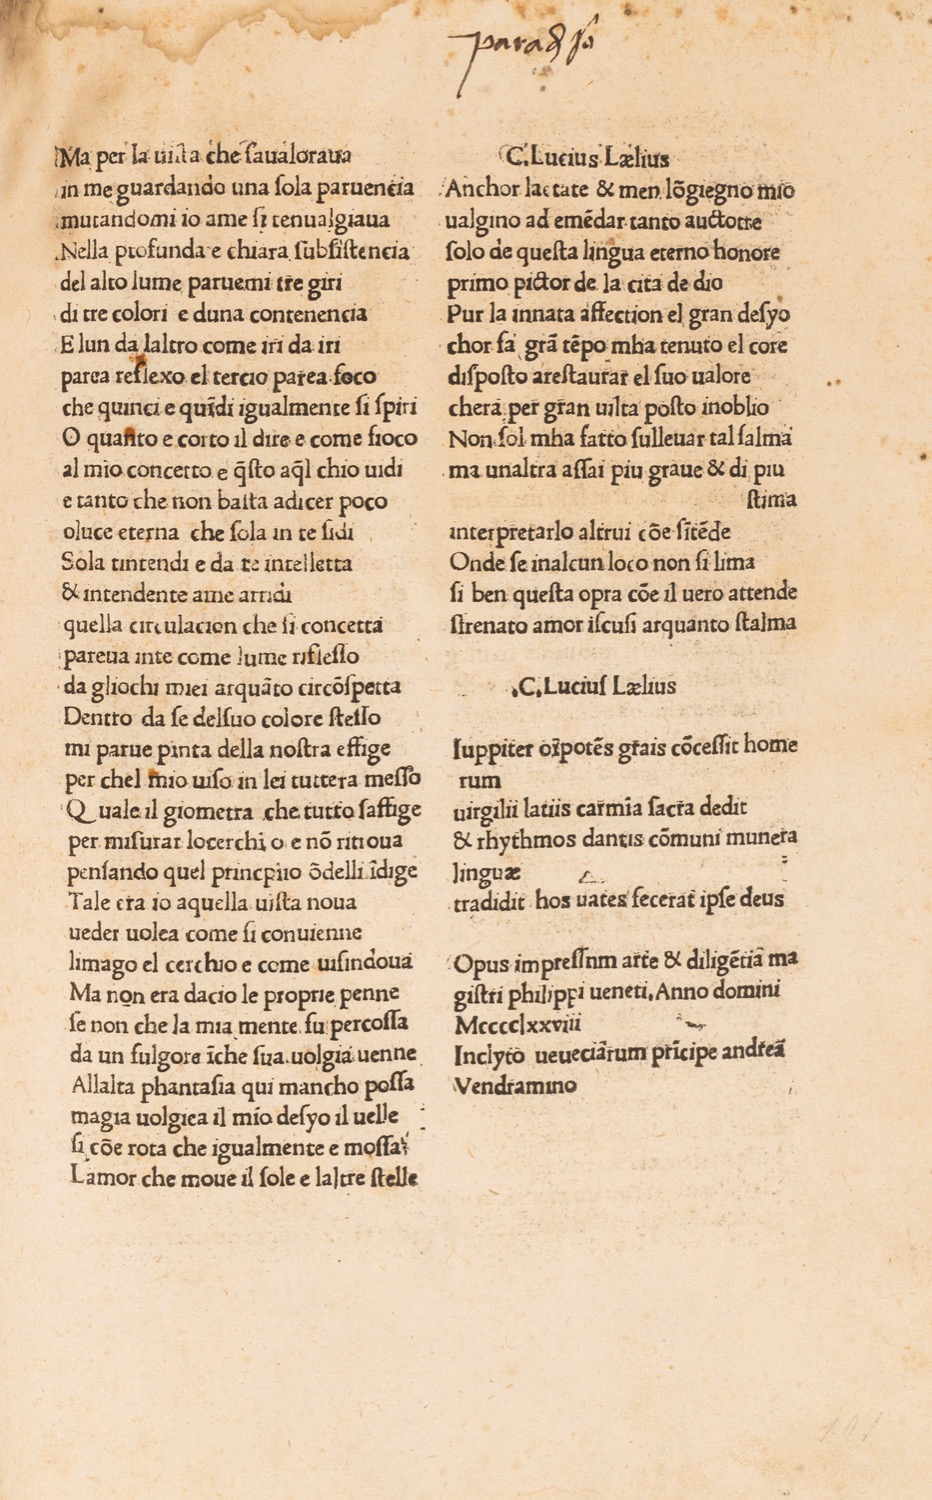 paradiso
Ma per la uista che saualoraua
in me guardando una sola paruencia
mutandomi io ame si tenualgiaua
Nella profunda e chiara subsistencia
del alto lume paruemi tre giri
di tre colori e duna contenencia
E lun da laltro come iri da iri
parea reflexo el tercio parea foco
che quinci e quīdi igualmente si spiri
O quanto e corto il dire e come fioco
al mio concetto e q̄sto aq̄l chio uidi
e tanto che non basta adicer poco
oluce eterna che sola in te sidi
Sola tintendi e da te intelletta
& intendente ame arridi
quella circulacion che si concetta
pareua inte come lume riflesso
da gliochi miei arquāto circōspetta
Dentro da se delsuo colore stesso
mi parue pinta della nostra effige
per chel mio uiso in lei tuttera messo
Quale il giometra che tutto saffige
per misurar locerchio e nō ritroua
pensando quel princpiio ōdelli īdige
Tale era io aquella uista noua
ueder uolea come si conuienne
limago el cerchio e come uisindoua
Ma non era dacio le proprie penne
se non che la mia mente fu percossa
da un fulgore īche sua uolgia uenne
Allalta phantasia qui mancho possa
magia uolgiea il mio desyo il uelle
si cōe rota che igualmente e mossa
Lamor che moue il sole e laltre stelle
C. Lucius Lælius
Anchor lactate & men lōgiegno mio
ualgino ad emēdar tanto auctorre
solo de questa lingua eterno honore
primo pictor de la cita de dio
Pur la innata affection el gran desyo
chor fa grā tēpo mha tenuto el core
disposto arestaurar el suo ualore
chera per gran uilta posto inoblio
Non sol mha fatto sulleuar tal salma
ma unaltra assai piu graue & di piu
stima
interpretarlo altrui cōe sītēde
Onde se inalcun loco non si lima
si ben questa opra cōe il uero attende
strenato amor iscusi arquanto stalma
C. Lucius Lælius
Iuppiter oīpotēs graīs cōcessit home
rum
uirgilii latiis carmīa sacra dedit
& rhythmos dantis cōmuni munera
linguæ
tradidit hos uates fecerat ipse deus
Opus impressnm arte & diligētia ma
gistri philippi ueneti. Anno domini
Mcccclxxviii
Inclyto ueueciarum prīcipe andrea
Vendramino